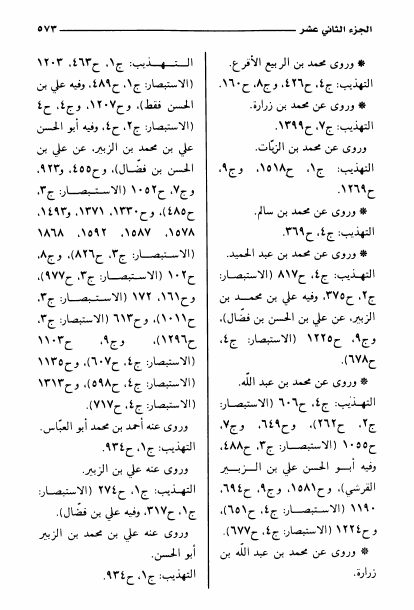 الجزء الثاني عشر ٥٧٣
* وروى محمد بن الربيع الأقرع.
التهذيب: ج٤، ح٤٢٦، وج٨، ح١٦٠.
* وروى عن محمد بن زرارة.
التهذيب: ج٧، ح١٣٩٩.
وروى عن محمد بن الزيّات.
التهذيب: ج١، ح١٥١٨، وج٩،
ح١٢٦٩.
* وروى عن محمد بن سالم.
التهذيب: ج٤، ح٣٦٩.
* وروى عن محمد بن عبد الحميد.
التهذيب: ج٤، ح٨١٧ (الاستبصار:
ج٢، ح٣٧٥، وفيه علي بن محمد بن
الزبير، عن علي بن الحسن بن فضّال)،
وج٩، ح١٢٢٥ (الاستبصار: ج٤،
ح٦٧٨).
* وروى عن محمد بن عبد الله.
التهذيب: ج٤، ح٦٠٦ (الاستبصار:
ج٢، ح٢٦٢)، وح٦٤٩، وج٧،
ح١٠٥٥ (الاستبصار: ج٣، ح٤٨٨،
وفيه أبو الحسن علي بن الزبير
القرشي)، وح١٥٨١، وج٩، ح٦٩٤،
١١٩٠ (الاستبصار: ج٤، ح٦٥١)،
وح١٢٢٤ (الاستبصار: ج٤، ح٦٧٧).
* وروى عن محمد بن عبد الله بن
زرارة.
التهذيب: ج١، ح٤٦٣، ١٢٠٣
(الاستبصار: ج١، ح٤٨٩، وفيه علي بن
الحسن فقط)، وح١٢٠٧، وج٤، ح٤
(الاستبصار: ج٢، ح٤، وفيه أبو الحسن
علي بن محمد بن الزبير، عن علي بن
الحسن بن فضّال)، وح٤٥٥، و٩٢٣،
وج٧، ح١٠٥٢ (الاستبصار: ج٣،
ح٤٨٥)، وح١٣٣٠، ١٣٧١، و١٤٩٣،
١٥٧٨، ١٥٨٧، ١٥٩٢، ١٨٦٨
(الاستبصار: ج٣، ح٨٢٦)، وج٨،
ح١٠٢ (الاستبصار: ج٣، ح٩٧٧)،
وح١٦١، ١٧٢ (الاستبصار: ج٣،
ح١٠١١)، وح٦١٣ (الاستبصار: ج٣،
ح١٢٩٦)، وج٩، ح١١٠٣
(الاستبصار: ج٤، ح٦٠٧)، وح١١٣٥
(الاستبصار: ج٤، ح٥٩٨)، وح١٣١٣
(الاستبصار: ج٤، ح٧١٧).
وروى عنه أحمد بن محمد أبو العبّاس.
التهذيب: ج١، ح٩٣٤.
وروى عنه علي بن الزبير.
التهذيب: ج١، ح٢٧٤ (الاستبصار:
ج١، ح٣١٧، وفيه علي بن فضّال).
وروى عنه علي بن محمد بن الزبير
أبو الحسن.
التهذيب: ج١، ح٩٣٤.